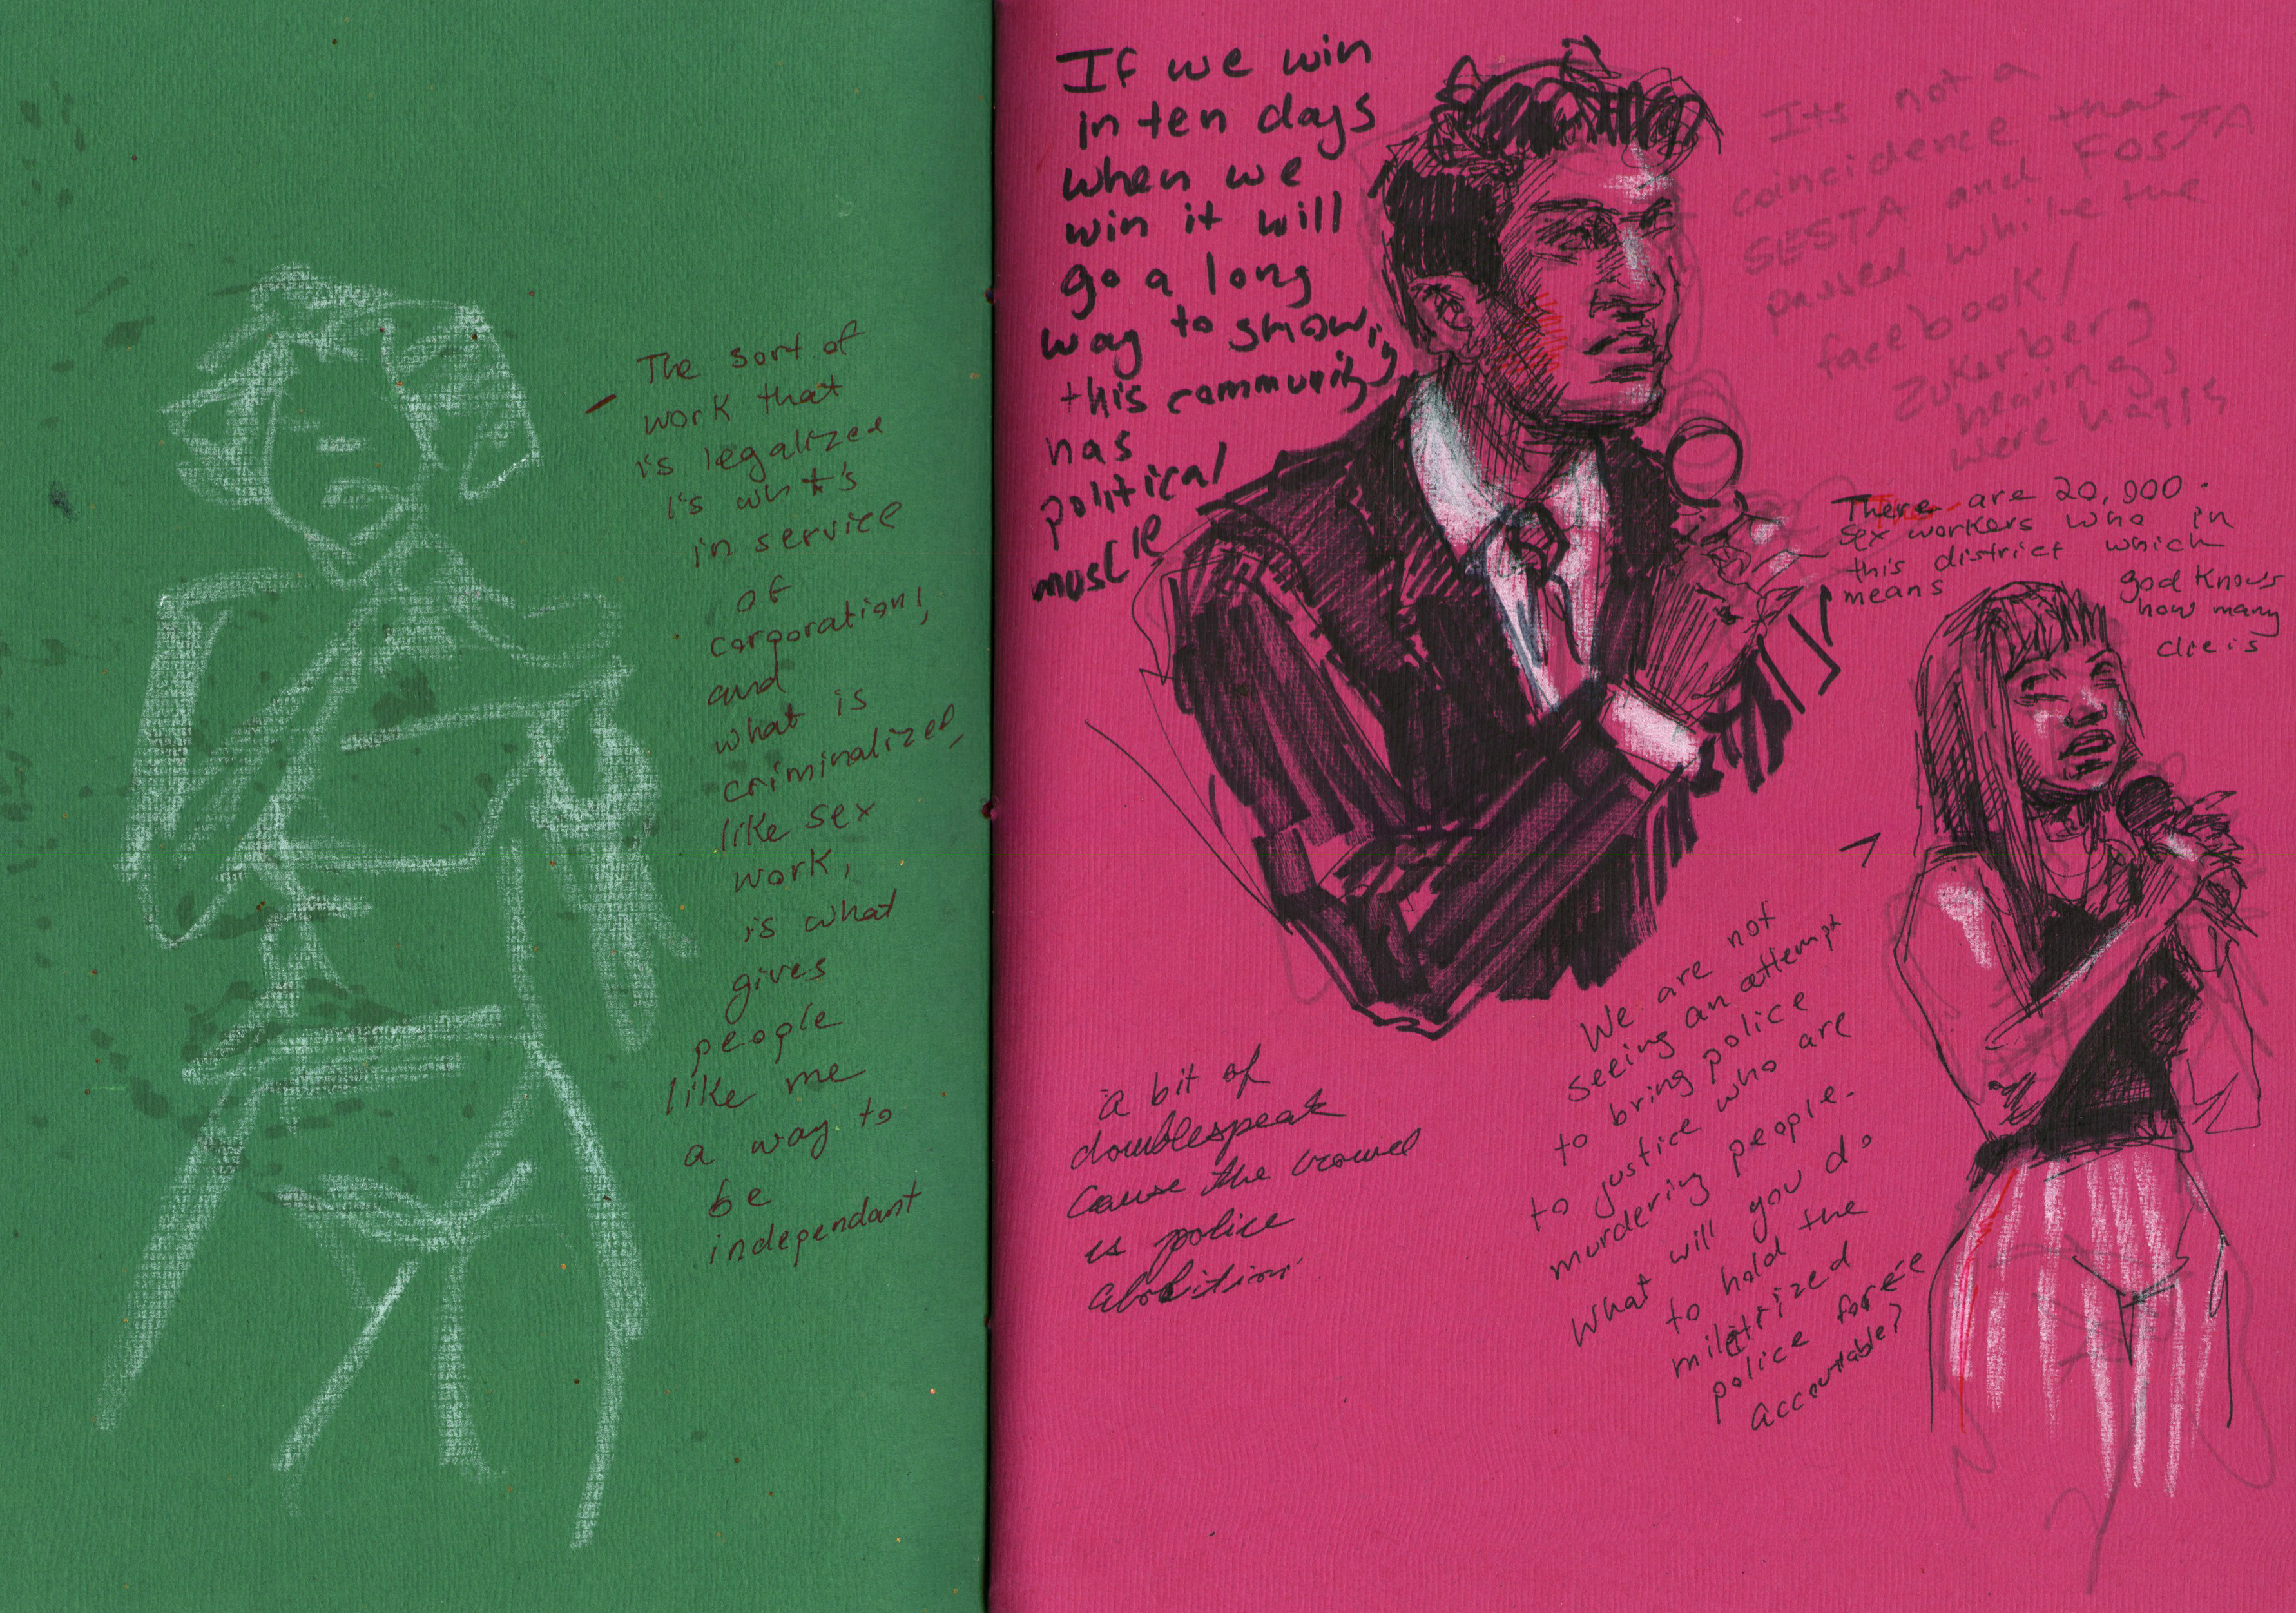 The sort of
work that
is legalized
is what's
in service
of
corporations,
and
what is
criminalized,
like sex
work,
is what
gives
people
like me
a way to
be
independant
If we win
in ten days
when we
win it will
go a long
way to showing
this community
has
political
muscle
Its not a
coincidence that
SESTA and FOSTA
passed while the
facebook/
Zukerberg
hearings
were happ
There are 20,000
sex workers who in
this district which
means
god knows
how many
clie is
We are not
seeing an attempt
to bring police
to justice who are
murdering people.
What will you do
to hold the
militrized
police force
accountable?
a bit of
doublespeak
cause the crowd
is police
abolition